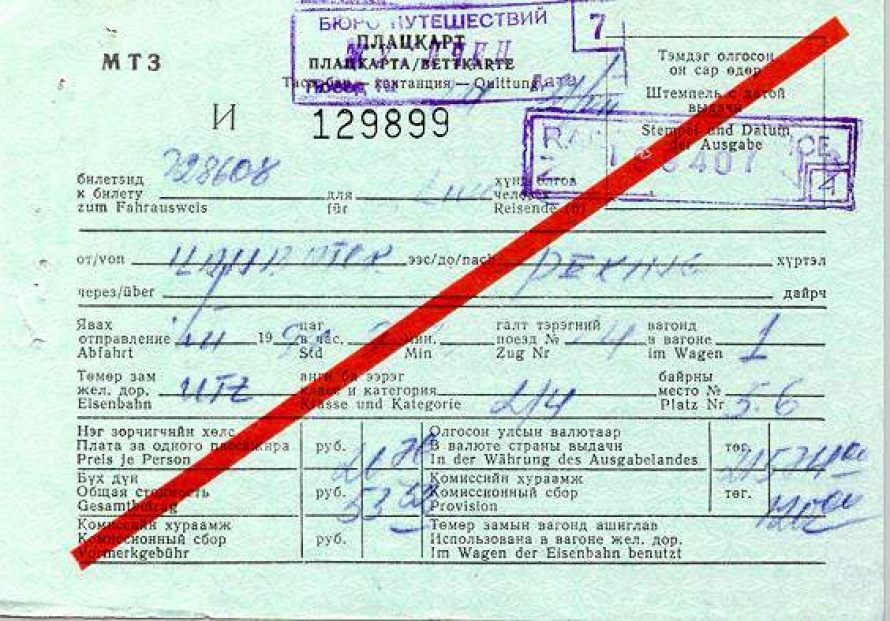 БЮРО ПУТЕШЕСТВИЙ
7
МТЗ
ПЛАЦКАРТ
ПЛАЦКАРТА/BETTKARTE
Quittung
Тэмдэг олгосон
он сар өдөр
Штемпель с датой
выдачи
Stempel und Datum
der Ausgabe
И 129899
билетэнд
к билету
zum Fahrausweis
728608
для
für
хүнд олгов
человек
Reisende (n)
от/von
ээс/до/nach PEKING хүртэл
через/über дайрч
Явах
отправление
Abfahrt
19
цаг
в час.
Std
мин.
Min
галт тэрэгний
поезд №
Zug Nr
4
вагонд
в вагоне
im Wagen
1
Төмөр зам
жел. дор.
Eisenbahn
UTZ
анги ба зэрэг
класс и категория
Klasse und Kategorie
2/4
байрны
место №
Platz Nr
5.6
Нэг зорчигчийн хөлс
Плата за одного пассажира
Preis je Person
руб.
Олгосон улсын валютаар
В валюте страны выдачи
In der Währung des Ausgabelandes
төг.
Бүх дүн
Общая стоимость
Gesamtbetrag
руб.
53
Комиссийн хураамж
Комиссионный сбор
Provision
төг.
Комиссийн хураамж
Комиссионный сбор
Vormerkgebühr
руб.
Төмөр замын вагонд ашиглав
Использована в вагоне жел. дор.
Im Wagen der Eisenbahn benutzt